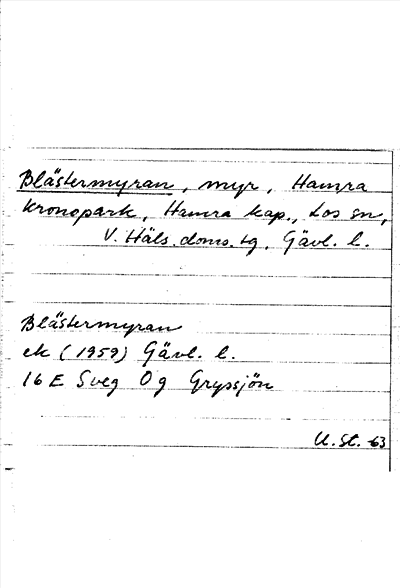 Blästermyran, myr, Hamra
kronopark, Hamra kap., Los sn,
V. Häls. doms. tg, Gävl. l.
Blästermyran
ek (1959) Gävl. l.
16 E Sveg 0 g Gryssjön
U. St. 63